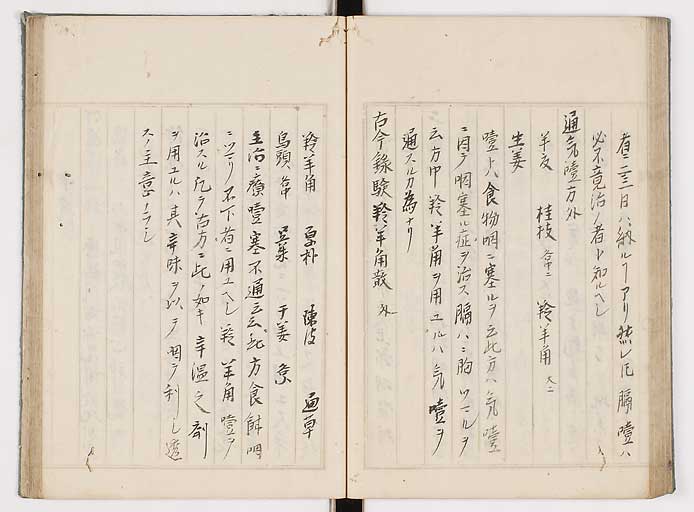 者二三日ハ納ルヿアリ然レ𪜈膈噎ハ
必不竟治ノ者ト知ルヘシ
通気噎方外
羊 桂枝 羚羊角
生姜
噎トハ食物咽ニ塞ルヲ云此方ハ気噎
ニ因テ咽塞ル症ヲ治ス膈ハ胸ツマルヲ
云方中羚羊角ヲ用ユルハ気噎ヲ
通スルカ為ナリ
古今録験羚羊角散 外
羚羊角 厚朴 陳皮 通草
烏頭 呉茱 干姜
主治ニ療噎塞不通云云此方食餅咽
ニツマリ不下者ニ用ユヘシ羚羊角噎ヲ
治スル 古方ニ此ノ如キ辛温之剤
ヲ用ユルハ其辛味ヲ以テ咽ヲ利シ透
スノ主意ナラン